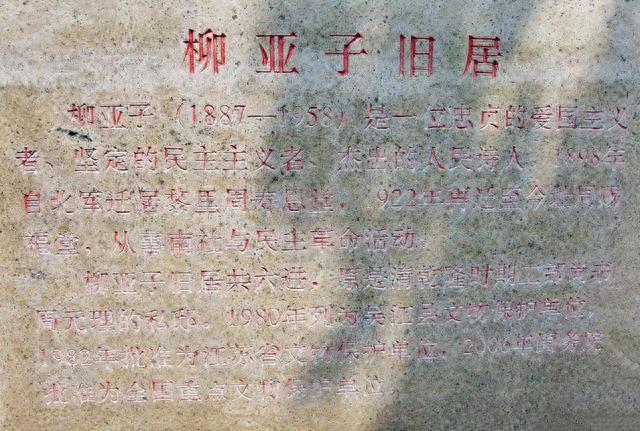 柳亚子旧居
柳亚子（1887—1958）是一位忠贞的爱国主义
者、坚定的民主主义者、杰出的人民诗人。1898年
自北厍迁居黎里周寿恩堂，1922年曾迁至今址周赐
福堂，从事南社与民主革命活动。
柳亚子旧居共六进，原是清乾隆时期工部尚书
周元理的私邸。1980年列为吴江县文物保护单位，
1982年批准为江苏省文物保护单位，2006年国务院
批准为全国重点文物保护单位。